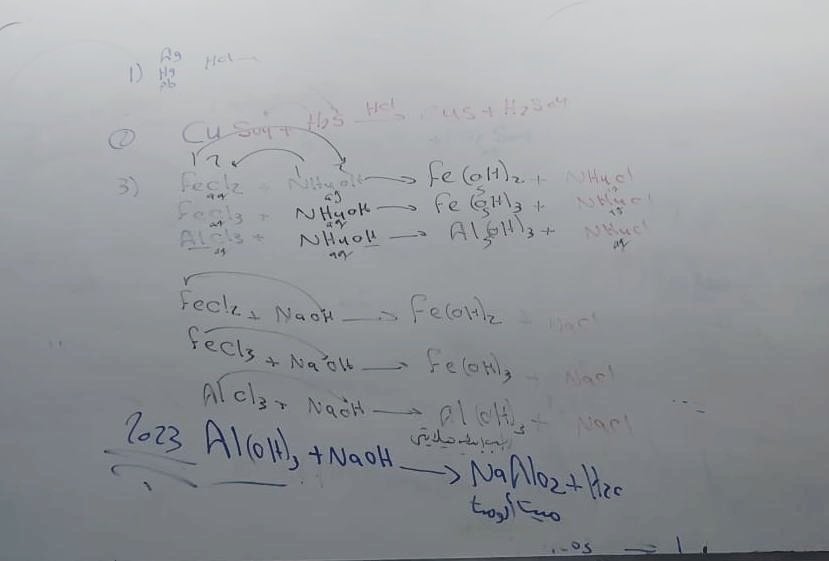 1) Ag Hg Pb HCl
② CuSO4 + H2S —HCl→ CuS + H2SO4
1 2 1 2
3) FeCl2 + NH4OH → Fe(OH)2 + NH4Cl
aq aq S aq
FeCl3 + NH4OH → Fe(OH)3 + NH4Cl
aq aq S aq
AlCl3 + NH4OH → Al(OH)3 + NH4Cl
aq aq S aq
FeCl2 + NaOH → Fe(OH)2 + NaCl
FeCl3 + NaOH → Fe(OH)3 + NaCl
AlCl3 + NaOH → Al(OH)3 + NaCl
2023 Al(OH)3 + NaOH → NaAlO2 + H2O